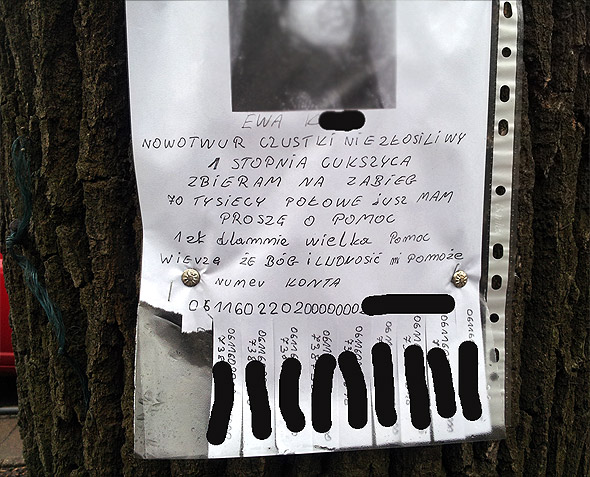 EWA K
NOWOTWUR CZUSTKI NIEZŁOSILIWY
1 STOPNIA CUKSZYCA
ZBIERAM NA ZABIEG
70 TYSIĘCY POŁOWE JUSZ MAM
PROSZĘ O POMOC
1 zł dlammie wielka Pomoc
WIEVZĄ ŻE BÓG I LUDKOŚĆ mi POMOŻE
NUMEV KONTA
0611602202000000